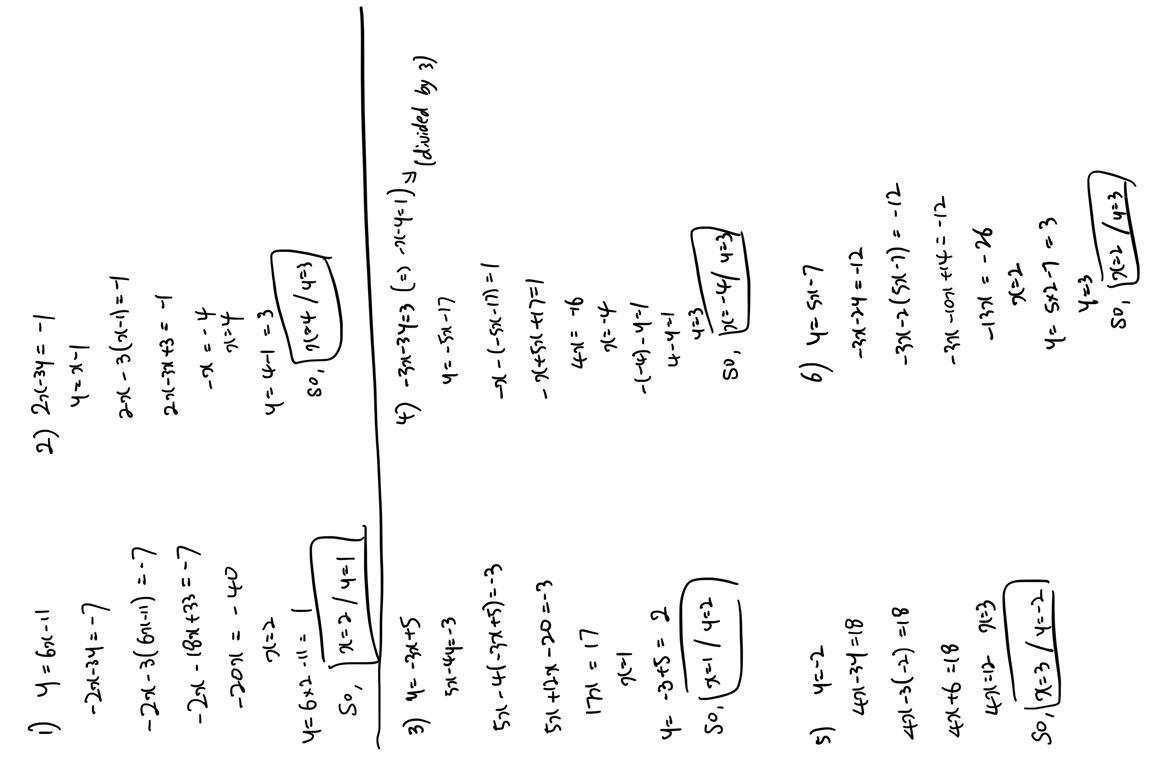 1) y = 6x-11
-2x-3y = -7
-2x-3(6x-11) = -7
-2x-18x+33 = -7
-20x = -40
x=2
y= 6×2-11 = 1
So, x=2 / y=1
2) 2x-3y = -1
y = x-1
2x-3(x-1) = -1
2x-3x+3 = -1
-x = -4
x=4
y = 4-1 = 3
so, x=4 / y=3
3) y = -3x+5
5x-4y=-3
5x-4(-3x+5)=-3
5x+12x-20=-3
17x = 17
x=1
y= -3+5 = 2
So, x=1 / y=2
4) -3x-3y=3 (=) -x-y=1) (divided by 3)
y = -5x-17
-x-(-5x-17)=1
-x+5x+17=1
4x = -16
x=-4
-(-4)-y=1
4-y=1
y=3
So, x=-4 / y=3
5) y=-2
4x-3y=18
4x-3(-2)=18
4x+6=18
4x=12 x=3
So, x=3 / y=-2
6) y=5x-7
-3x-2y=-12
-3x-2(5x-7) = -12
-3x-10x+14=-12
-13x = -26
x=2
y= 5×2-7 = 3
y=3
So, x=2 / y=3